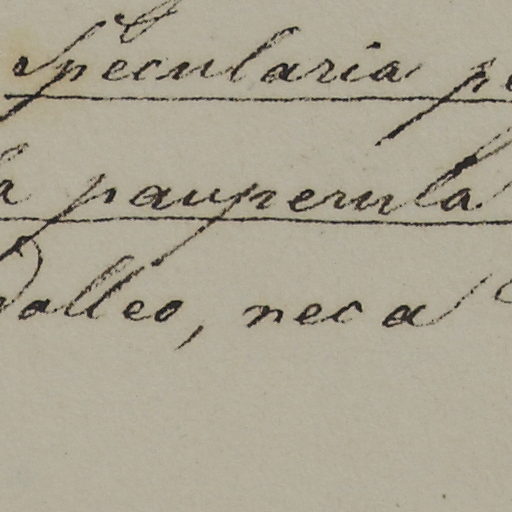 Specularia pe
a pauperula
Dalleo, nec a